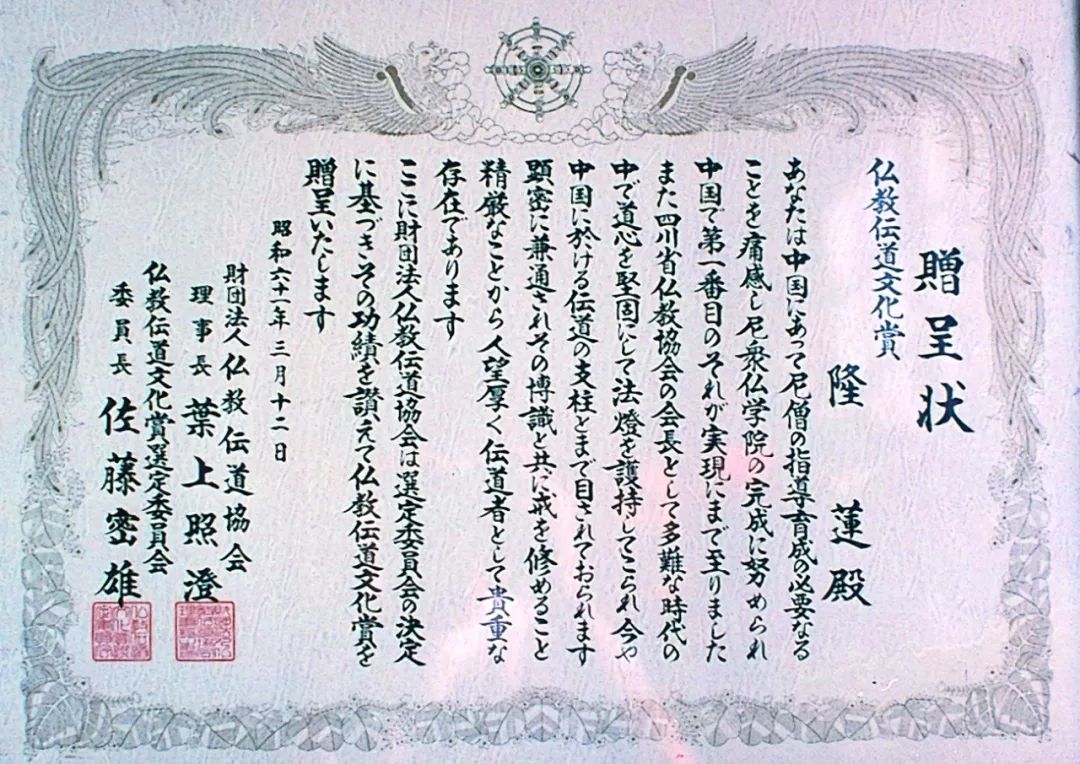 贈呈状
仏教伝道文化賞
隆蓮殿
あなたは中国にあって尼僧の指導育成の必要なる
ことを痛感し尼衆仏学院の完成に努められ
中国で第一番目のそれが実現にまで至りました
また四川省仏教協会の会長として多難な時代の
中で道心を堅固にして法燈を護持してこられ今や
中国に於ける伝道の支柱とまで目されております
顕密に兼通されその博識と共に戒を修めること
精厳なことから人望厚く伝道者として貴重な
存在であります
ここに財団法人仏教伝道協会は選定委員会の決定
に基づきその功績を讃えて仏教伝道文化賞を
贈呈いたします
昭和六十一年三月十二日
財団法人仏教伝道協会
理事長 葉上照澄
仏教伝道文化賞選定委員会
委員長 佐藤密雄